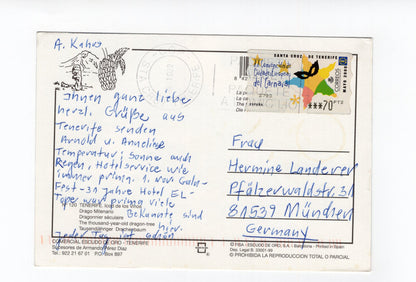 A. Kahrs
SANTA CRUZ DE TENERIFE
CORREOS
***70 PTS
ESPAÑA
Ihnen ganz liebe
herzl. Grüße aus
Teneriffe senden
Arnold u. Annelise
Temperatur; Sonne auch
Regen, Hotelservice wie
immer prima. 1. vor Gala-
Fest - 31 Jahre Hotel EL-
Tope war prima viele
Bekannte sind
hier.
Jeder Tag ist schön
Frau
Hermine Landerer
Pfälzerwaldstr.
81539 München
Germany
120 TENERIFE, Icod de los Vinos
Drago Milenario
Dragonnier séculaire
The thousand-year-old dragon-tree
Tausendjähriger Drachenbaum
COMERCIAL ESCUDO DE ORO - TENERIFE
Sucesores de Armando Pérez Díaz
Tel.: 922 21 67 01 P.O. Box 897
© FISA I ESCUDO DE ORO, S.A. - Barcelona - Printed in Spain
Dep. Legal B. 20001-99
© PROHIBIDA LA REPRODUCCION TOTAL O PARCIAL